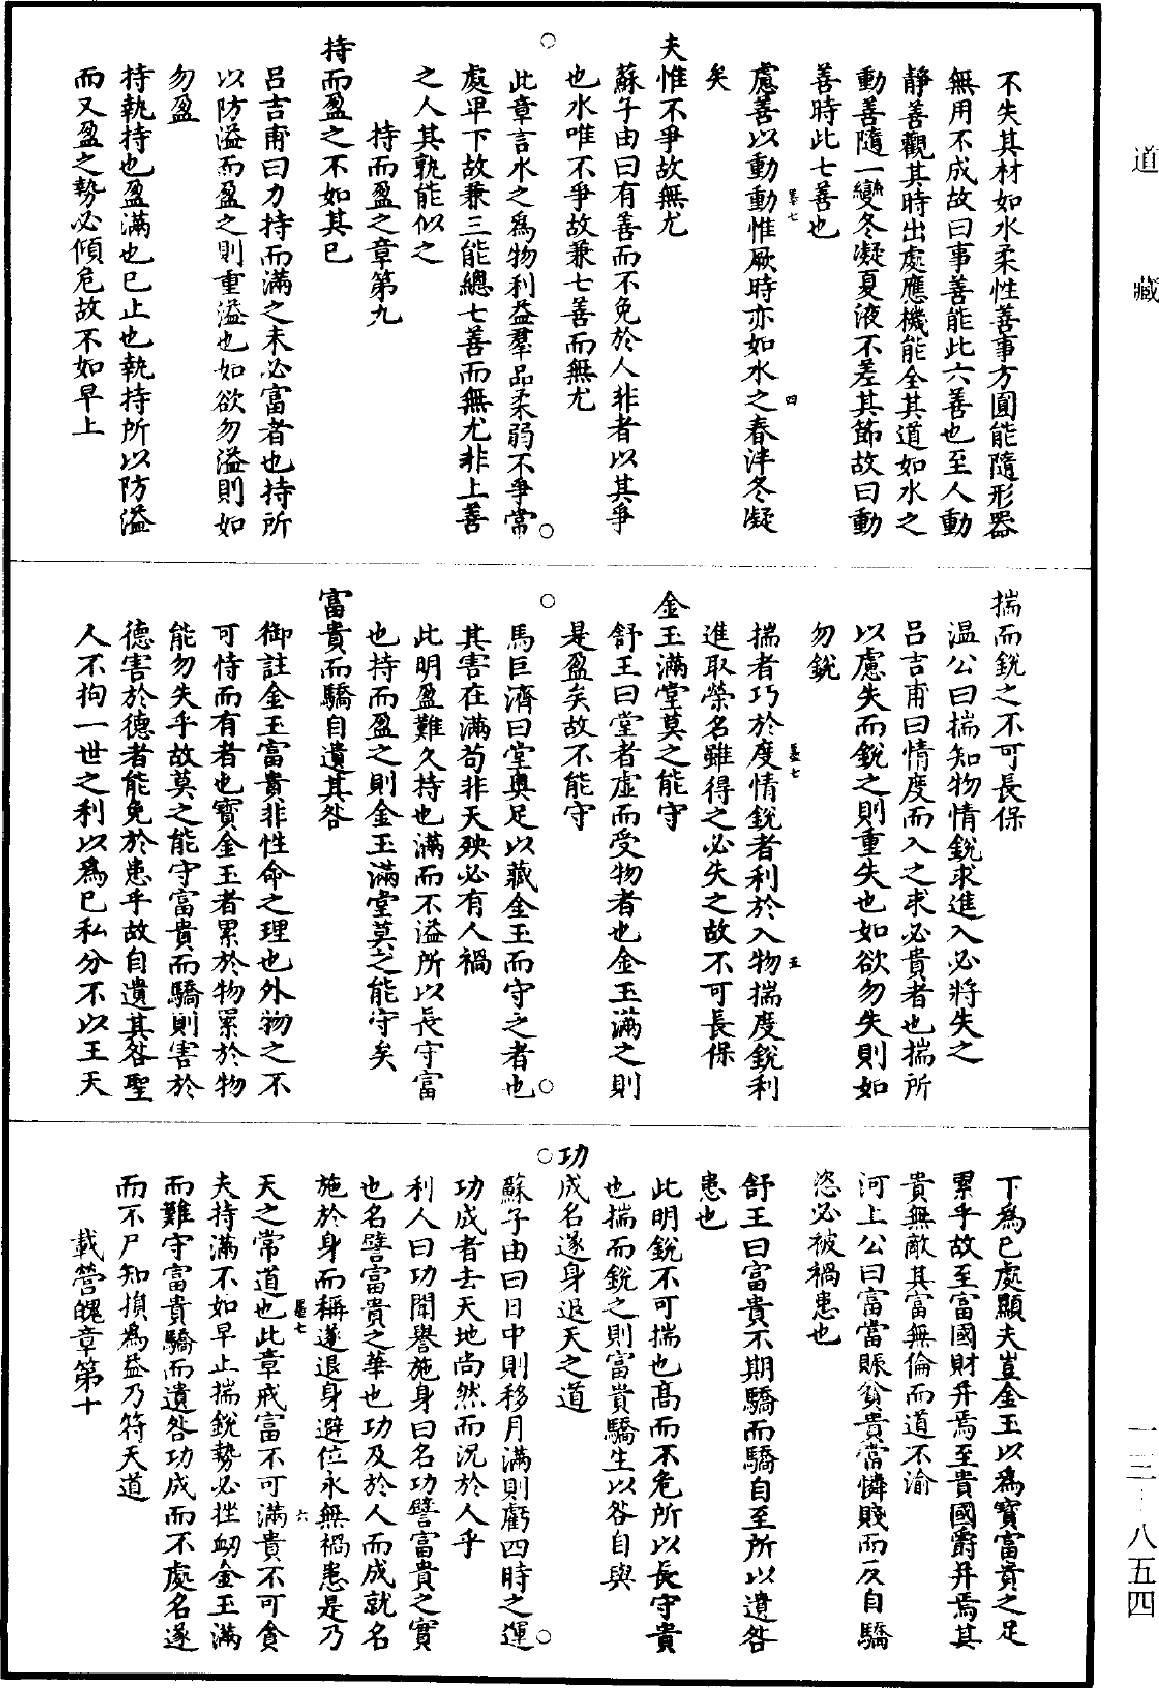 道藏
一三·八五四
不失其材如水柔性善事方圓能隨形器
無用不成故曰事善能此六善也至人動
靜善觀其時出處應機能全其道如水之
動善隨一變冬凝夏液不差其節故曰動
善時此七善也
墨七 四
慮善以動動惟厥時亦如水之春泮冬凝
矣
夫惟不爭故無尤
蘇子由曰有善而不免於人非者以其爭
也水唯不爭故兼七善而無尤
此章言水之爲物利益羣品柔弱不爭常
處卑下故兼三能總七善而無尤非上善
之人其孰能似之
持而盈之章第九
持而盈之不如其已
呂吉甫曰力持而滿之未必富者也持所
以防溢而盈之則重溢也如欲勿溢則如
勿盈
持執持也盈滿也已止也執持所以防溢
而又盈之勢必傾危故不如早上
揣而銳之不可長保
溫公曰揣知物情銳求進入必將失之
呂吉甫曰情度而入之求必貴者也揣所
以慮失而銳之則重失也如欲勿失則如
勿銳
墨七 五
揣者巧於度情銳者利於入物揣度銳利
進取榮名雖得之必失之故不可長保
金玉滿堂莫之能守
舒王曰堂者虛而受物者也金玉滿之則
是盈矣故不能守
馬巨濟曰堂奧足以藏金玉而守之者也
其害在滿苟非天殃必有人禍
此明盈難久持也滿而不溢所以長守富
也持而盈之則金玉滿堂莫之能守矣
富貴而驕自遺其咎
御註金玉富貴非性命之理也外物之不
可恃而有者也寶金玉者累於物累於物
能勿失乎故莫之能守富貴而驕則害於
德害於德者能免於患乎故自遺其咎聖
人不拘一世之利以爲己私分不以王天
下爲己處顯夫豈金玉以爲寶富貴之足
累乎故至富國財幷焉至貴國爵幷焉其
貴無敵其富無倫而道不渝
河上公曰富當賑貧貴當憐賤而反自驕
恣必被禍患也
舒王曰富貴不期驕而驕自至所以遺咎
患也
此明銳不可揣也高而不危所以長守貴
也揣而銳之則富貴驕生以咎自與
功成名遂身退天之道
蘇子由曰日中則移月滿則虧四時之運
功成者去天地尚然而況於人乎
利人曰功聞譽施身曰名功譬富貴之實
也名譬富貴之華也功及於人而成就名
施於身而稱遂退身避位永無禍患是乃
墨七 六
天之常道也此章戒富不可滿貴不可貪
夫持滿不如早止揣銳勢必挫衂金玉滿
而難守富貴驕而遺咎功成而不處名遂
而不尸知損爲益乃符天道
載營魄章第十